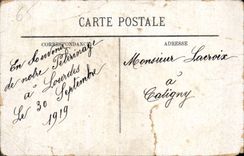 CARTE POSTALE
CORRESPONDANCE
En souvenir
de notre Pèlerinage
à Lourdes
Le 30 Septembre
1919
ADRESSE
Monsieur Lacroix
à
Catigny